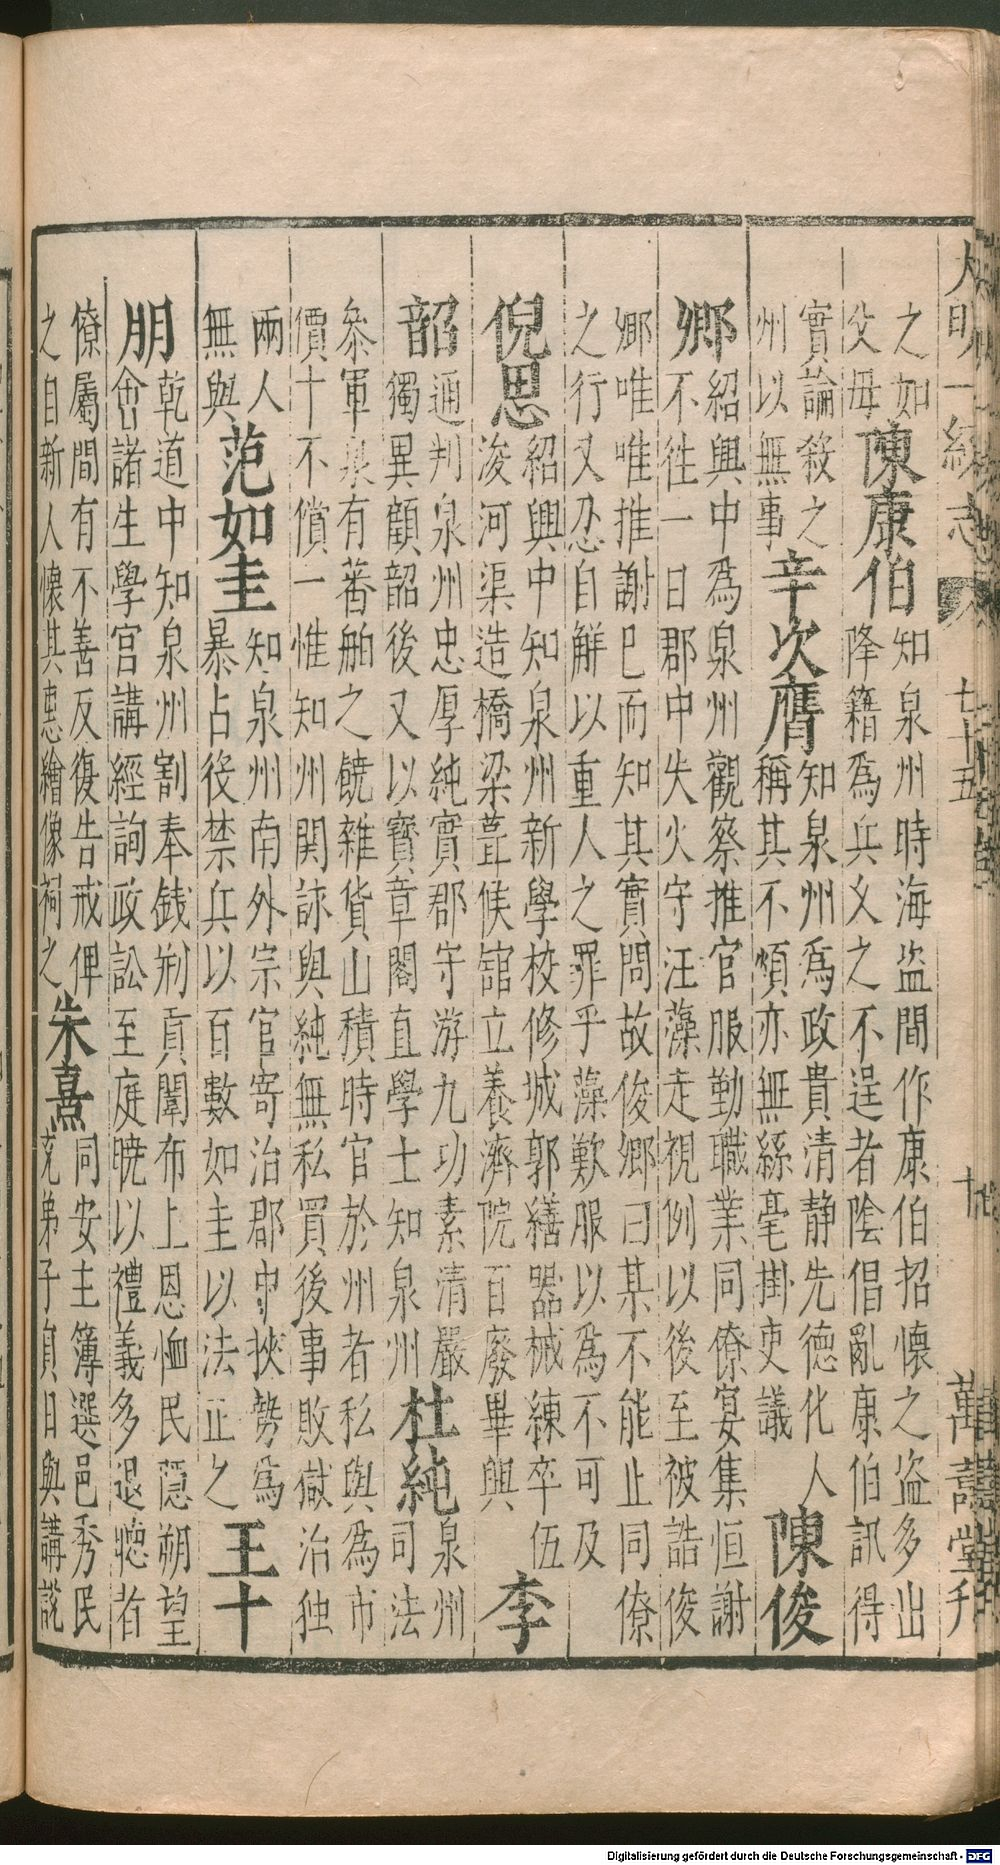 大明一統志 卷七十五 十九 萬壽堂刋
之如
父母
陳康伯
知泉州時海盜間作康伯招懷之盜多出
降籍為兵久之不逞者陰倡亂康伯訊得
實論殺之
州以無事
辛次膺
知泉州為政貴清静先德化人
稱其不煩亦無絲毫掛吏議
陳俊
卿
紹興中為泉州觀察推官服勤職業同僚宴集恒謝
不徃一日郡中失火守汪藻走視例以後至被詰俊
卿唯唯推謝已而知其實問故俊卿曰某不能止同僚
之行又忍自解以重人之罪乎藻歎服以為不可及
倪思
紹興中知泉州新學校修城郭繕器械練卒伍
浚河渠造橋梁葺候館立養濟院百廢畢興
李
韶
通判泉州忠厚純實郡守游九功素清嚴
獨異顧韶後又以寶章閣直學士知泉州
杜純
泉州
司法
叅軍泉有蕃舶之饒雜貨山積時官於州者私與為市
價十不償一惟知州関詠與純無私買後事敗獄治独
兩人
無與
范如圭
知泉州南外宗官寄治郡中挾勢為
暴占役禁兵以百數如圭以法正之
王十
朋
乾道中知泉州割奉錢剏貢闈布上恩恤民隱朔望
會諸生學宮講經詢政訟至庭曉以禮義多退聽者
僚屬間有不善反復告戒俾
之自新人懷其惠繪像祠之
朱熹
同安主簿選邑秀民
充弟子員日與講說
Digitalisierung gefördert durch die Deutsche Forschungsgemeinschaft - DFG